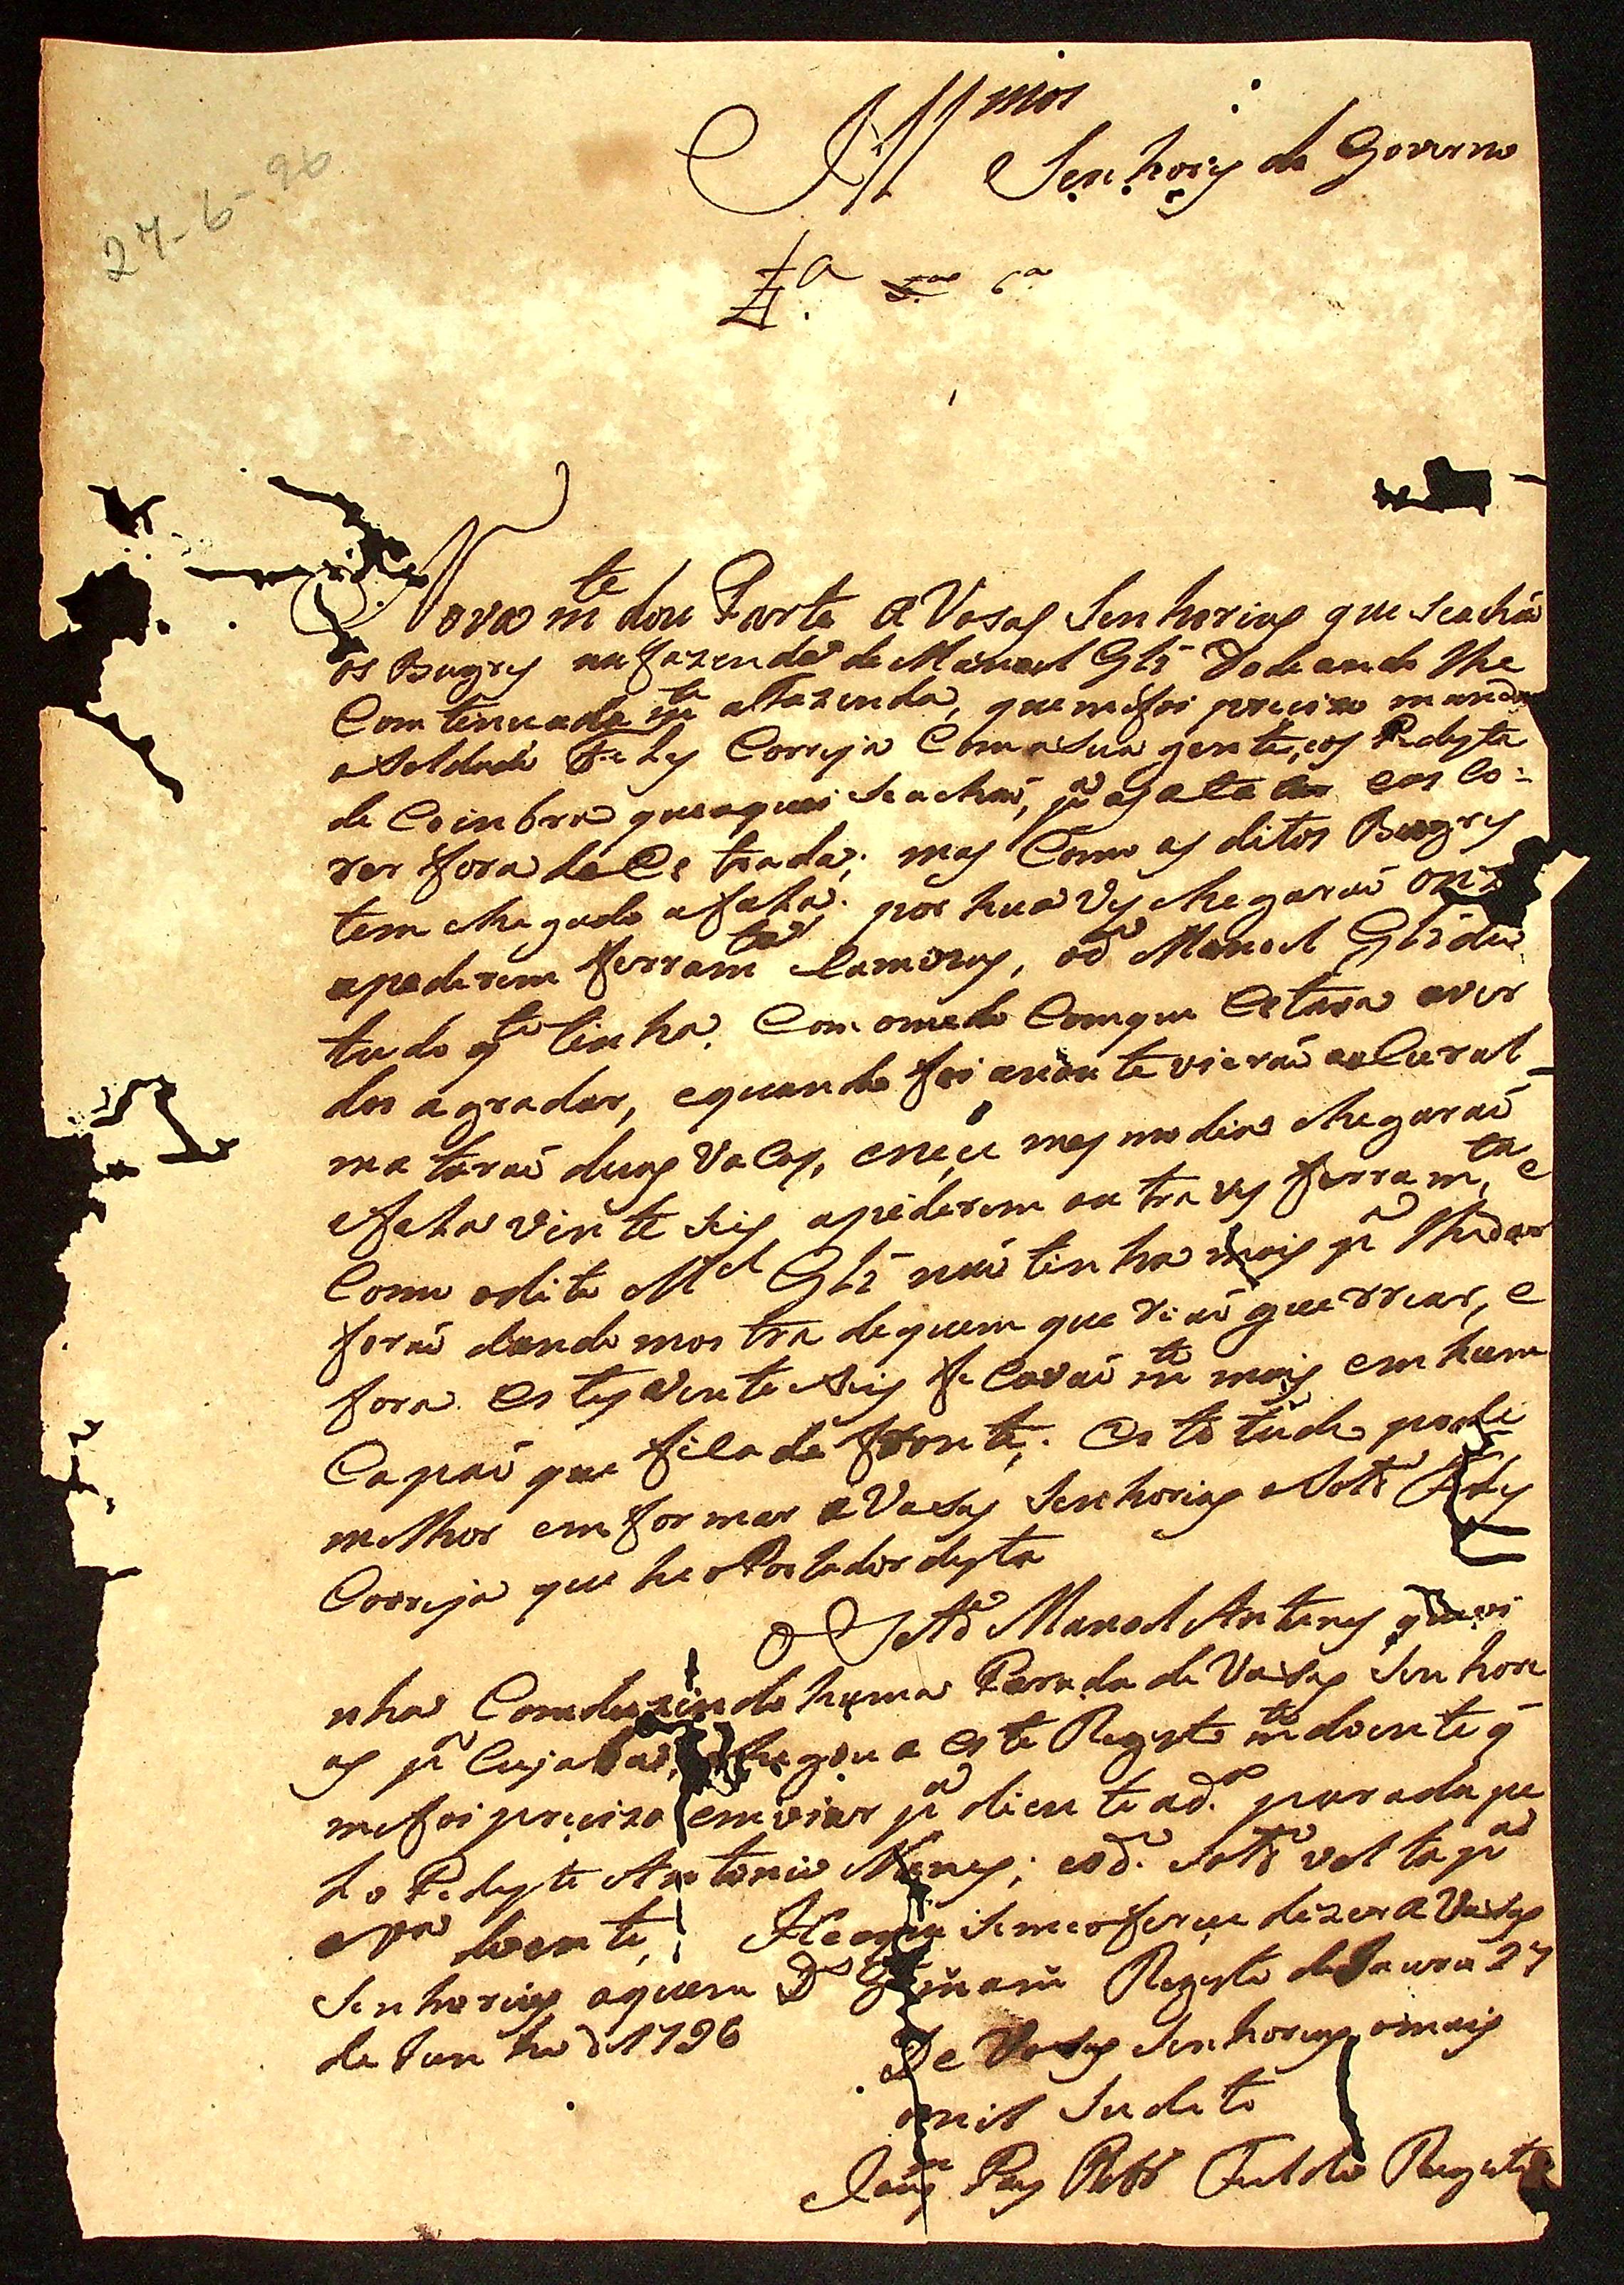 Ill.mos
Senhores do Governo
27-6-96
Novam.te dou Parte a Vosas Senhorias que Seachão
os Bugres na fazenda de Manoel Glz Rodeando lhe
Comtenuadam.te afazenda, que mefoi precizo mandar
o Soldado Correja Comasua gente, eos Pedestes
de Coinbra queaqui Seachaõ, p.a eos Co=
rer fora de Estrada; mas Como os ditos Bugres
tem chegado afalla. por hua Ves chegaraõ onze
apederem ferram.ta e od.o Manoel Glz deu
tudo q.to tinha. Com omedo Comque Estava aver
dos agradar, equando foi anoute vieraõ ao Curral
mataraõ duas Vacas, enece mesmo dia chegaraõ
efala vinte Seis apederem outra ves ferram.ta, e
Como odito M.el Glz naõ tinha mais p.a lhedar
foraõ dando mostra dequem queriaõ guerrear, e
fora Estes vinte Seis ficavaõ m.tos mais em hum
Capaõ que fica de fronte; Esto tudo pode
melhor emformar a Vosas Senhorias oSold.o
Correja que he oPortador desta
O Sold.o Manoel Antunes que vi
nha Comduzindo huma Parada de Vosas Senhori
as p.a Cujaba, chegou a Este Registo m.to doente q
mefoi precizo emviar p.a diente ad.a parada pe
lo Pedeste Antonio Nunes; eod.o Sold.o volta p.a
doente; He oque Semeoferece dizer a Vosas
Senhorias aquem D.s G.e m.s an.s Registo do Jauru 27
de Junho d 1796
De Vosas Senhorias omais
omil Sudito
Joaq.m Registo